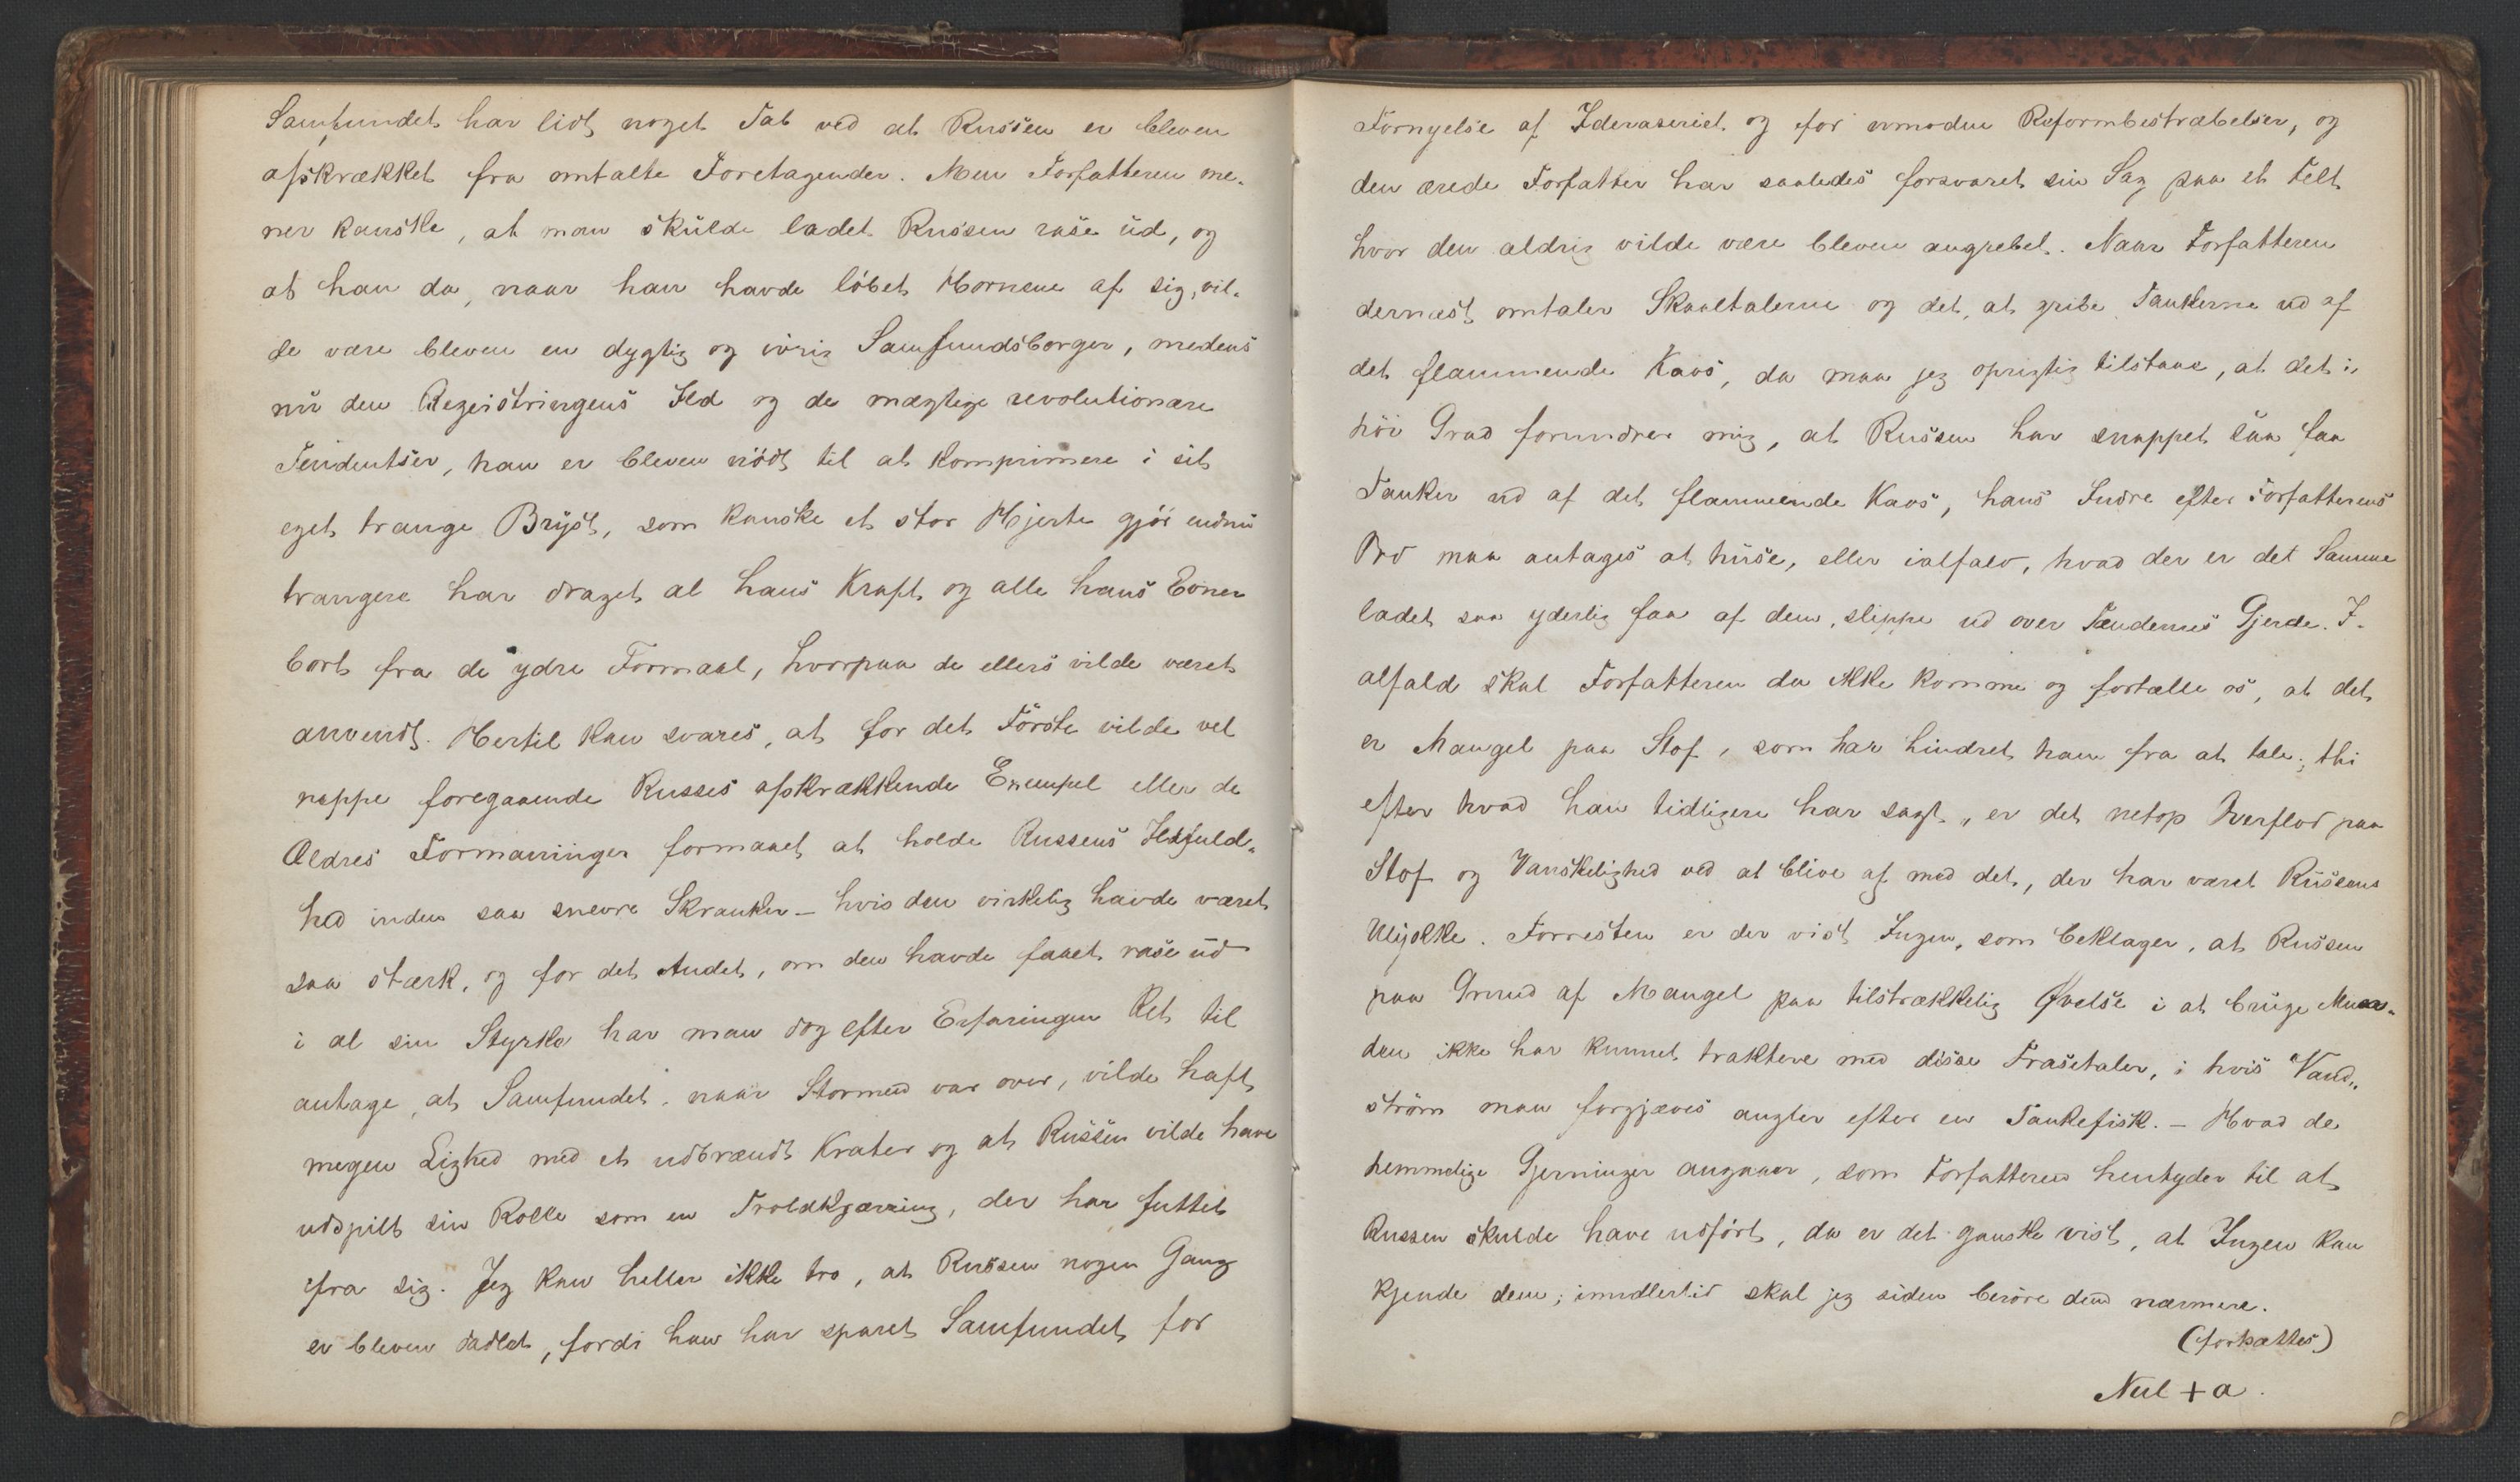 Samfundet har lidt noget Tab ved at Russen er bleven
afskrækket fra omtalte Foretagender. Men Forfatteren me-
ner kanske, at man skulde ladet Russen rase ud, og
at han da, naar han havde løbet Hornene af sig, vil-
de være bleven en dygtig og ivrig Samfundsborger, medens
nu den Begeistringens Ild og de mægtige revolutionære
Tendentser, han er bleven nödt til at komprimere i sit
eget trange Bryst, som kanske et stor Hjerte gjör endnu
trangere har draget al hans Kraft og alle hans Evner
bort fra de ydre Formaal, hvorpaa de ellers vilde været
anvendt. Hertil kan svares, at for det Förste vilde vel
neppe foregaaende Russes afskrækkende Exempel eller de
Ældres Formaninger formaaet at holde Russens Ildfuld-
hed inden saa snevre Skranker – hvis den virkelig havde været
saa stærk, og for det Andet, om den havde faaet rase ud
i al sin Styrke har man dog efter Erfaringen Ret til
antage, at Samfundet, naar Stormen var over, vilde haft
megen Lighed med et udbrændt Krater og at Russen vilde have
udspilt sin Rolle som en Troldkjærring, der har futtet
fra sig. Jeg kan heller ikke tro, at Russen nogen Gang
er bleven dadlet, fordi han har sparet Samfundet for
Fornyelse af Ideraseriet og for umodne Reformbestræbelser, og
den ærede Forfatter har saaledes forsvaret sin Sag paa et Felt
hvor den aldrig vilde være bleven angrebet. Naar Forfatteren
dernæst omtaler Skaaltalerne og det, at gribe Tankerne ud af
det flammende Kaos, da maa jeg oprigtig tilstaae, at det i
höi Grad forundrer mig, at Russen har snappet saa faa
Tanker ud af det flammende Kaos, hans Indre efter Forfatterens
Ord maa antages at huse, eller ialfald, hvad der er det Samme
ladet saa yderlig faa af dem, slippe ud over Tændernes Gjerde. I-
alfald skal Forfatteren da ikke komme og fortælle os, at det
er Mangel paa Stof, som har hindret ham fra at tale; thi
efter hvad han tidligere har sagt, er det netop Overflod paa
Stof og Vanskelighed ved at blive af med det, der har været Russens
Ulykke. Forresten er der vist Ingen, som beklager, at Russen
paa Grund af Mangel paa tilstrækkelig Øvelse i at bruge Mun-
den ikke har kunnet traktere med disse Frasetaler, i hvis Vand-
ström man forgjæves angler efter en Tankefisk. – Hvad de
hemmelige Gjerninger angaaer, som Forfatteren hentyder til at
Russen skulde have udfört, da er det ganske vist, at Ingen kan
kjende dem; imidlertid skal jeg siden beröre dem nærmere.
(fortsættes)
Nul + a.